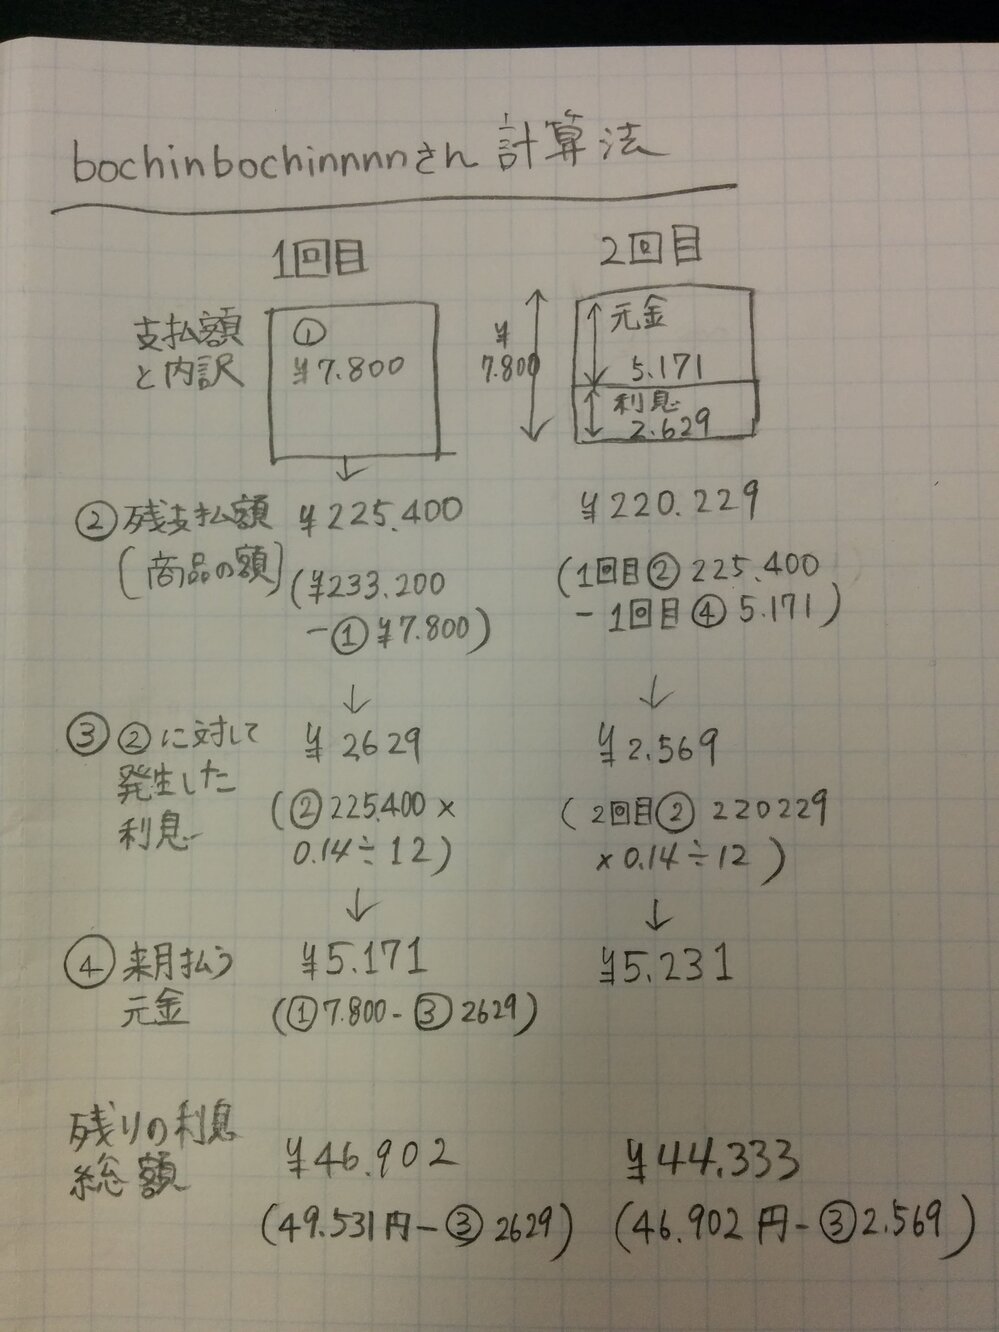 bochinbochinnnnさん 計算法
1回目
2回目
支払額
と内訳
①
¥7.800
¥
7.800
元金
5.171
利息
2.629
②残支払額
(商品の額)
¥225.400
(¥233.200
-①¥7.800)
¥220.229
(1回目②225.400
-1回目④5.171)
③②に対して
発生した
利息
¥2629
(②225.400×
0.14÷12)
¥2.569
(2回目②220229
×0.14÷12)
④来月払う
元金
¥5.171
(①7.800-③2629)
¥5.231
残りの利息
総額
¥46.902
(49.531円-③2629)
¥44.333
(46.902円-③2.569)